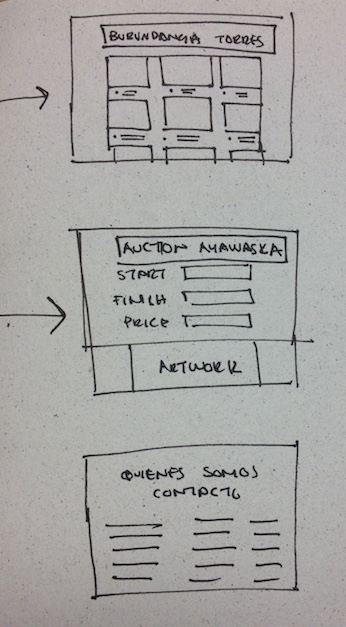 BURUNDANGA TORRES
AUCTION AYAWASKA
START
FINISH
PRICE
ARTWORK
QUIENES SOMOS
CONTACTO